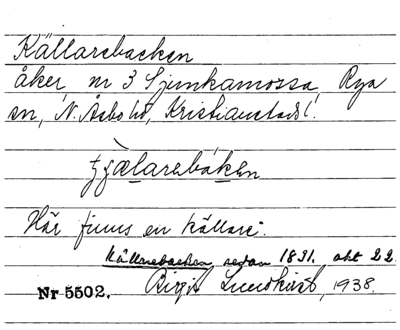 Källarebacken
åker, nr 3 Sjunkamossa, Rya
sn, N. Åsbo hd, Kristianstads l.
tjælarebaken
Här finns en källare.
Källarebacken, sedan 1831. akt 22
Nr 5502. Birgit Lundkvist, 1938.